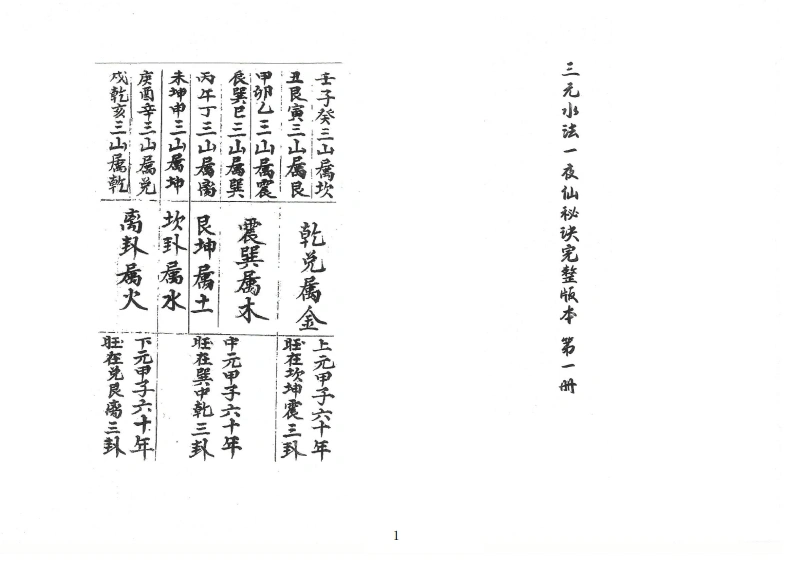 三元水法一夜仙秘诀完整版本 第一册
壬子癸三山属坎
丑艮寅三山属艮
甲卯乙三山属震
辰巽巳三山属巽
丙午丁三山属离
未坤申三山属坤
庚酉辛三山属兑
戌乾亥三山属乾
乾兑属金
震巽属木
艮坤属土
坎卦属水
离卦属火
上元甲子六十年
旺在坎坤震三卦
中元甲子六十年
旺在巽中乾三卦
下元甲子六十年
旺在兑艮离三卦
1